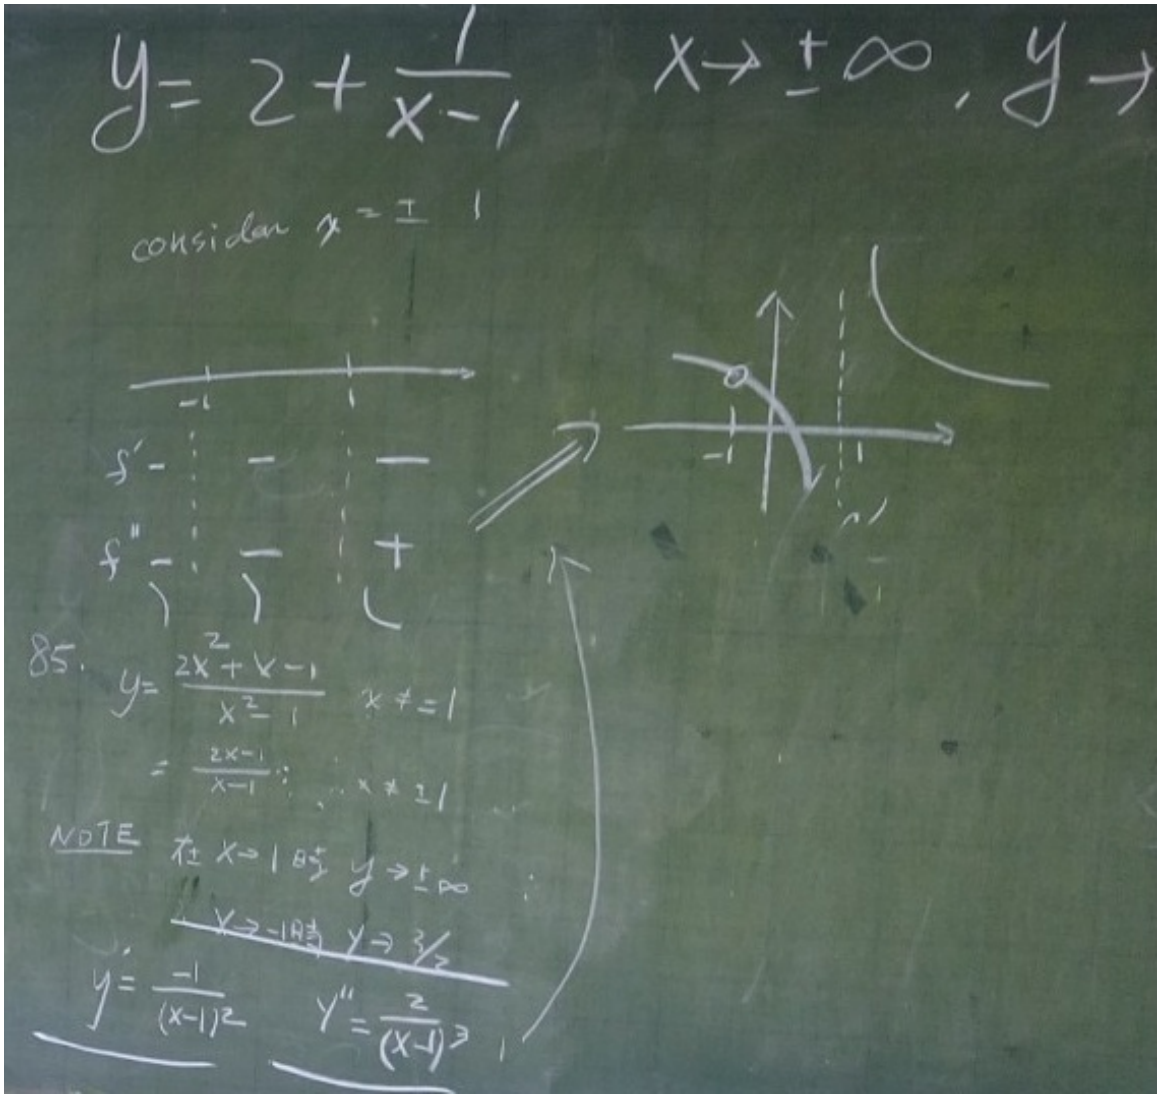 y = 2 + 1/(x-1)    x → ±∞, y →
consider x = ± 1
-1    1
f' -    -    -
f'' -    -    +
-1    1
85. y = (2x² + x - 1)/(x² - 1)    x ≠ = 1
= (2x-1)/(x-1) ; ∴ x ≠ ±1
NOTE 在 x → 1 時 y → ±∞
x → -1 時 y → 3/2
y' = -1/(x-1)²    y'' = 2/(x-1)³